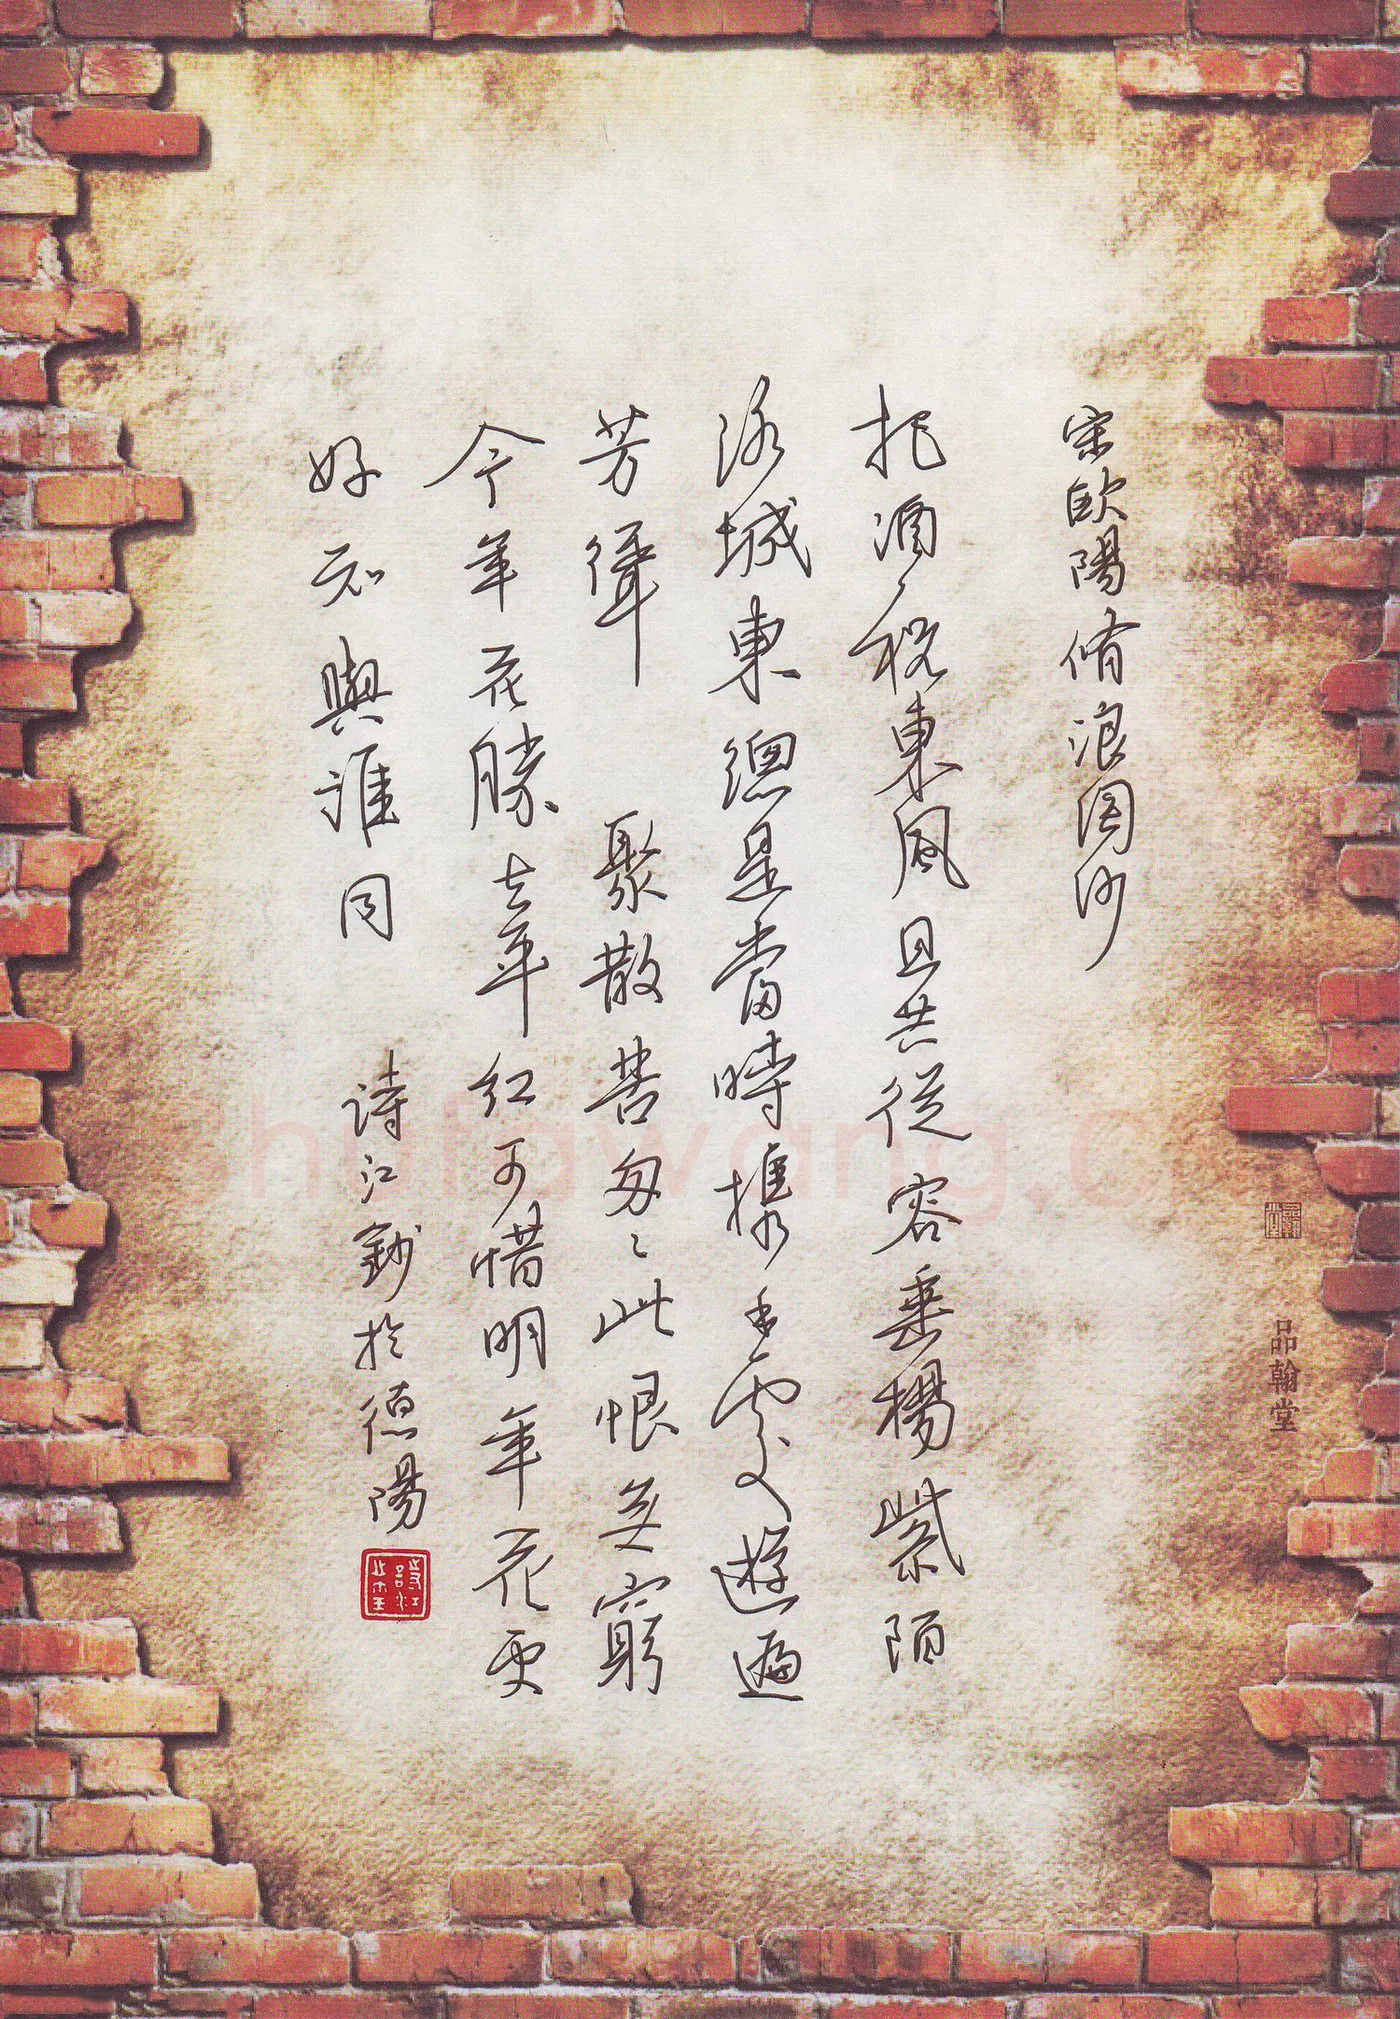 宋欧陽脩浪淘沙
把酒祝東風且共從容垂楊紫陌
洛城東總是當時攜手處遊遍
芳叢 聚散苦匆々此恨無窮
今年花勝去年紅可惜明年花更
好知與誰同 詩江鈔於德陽
品翰堂